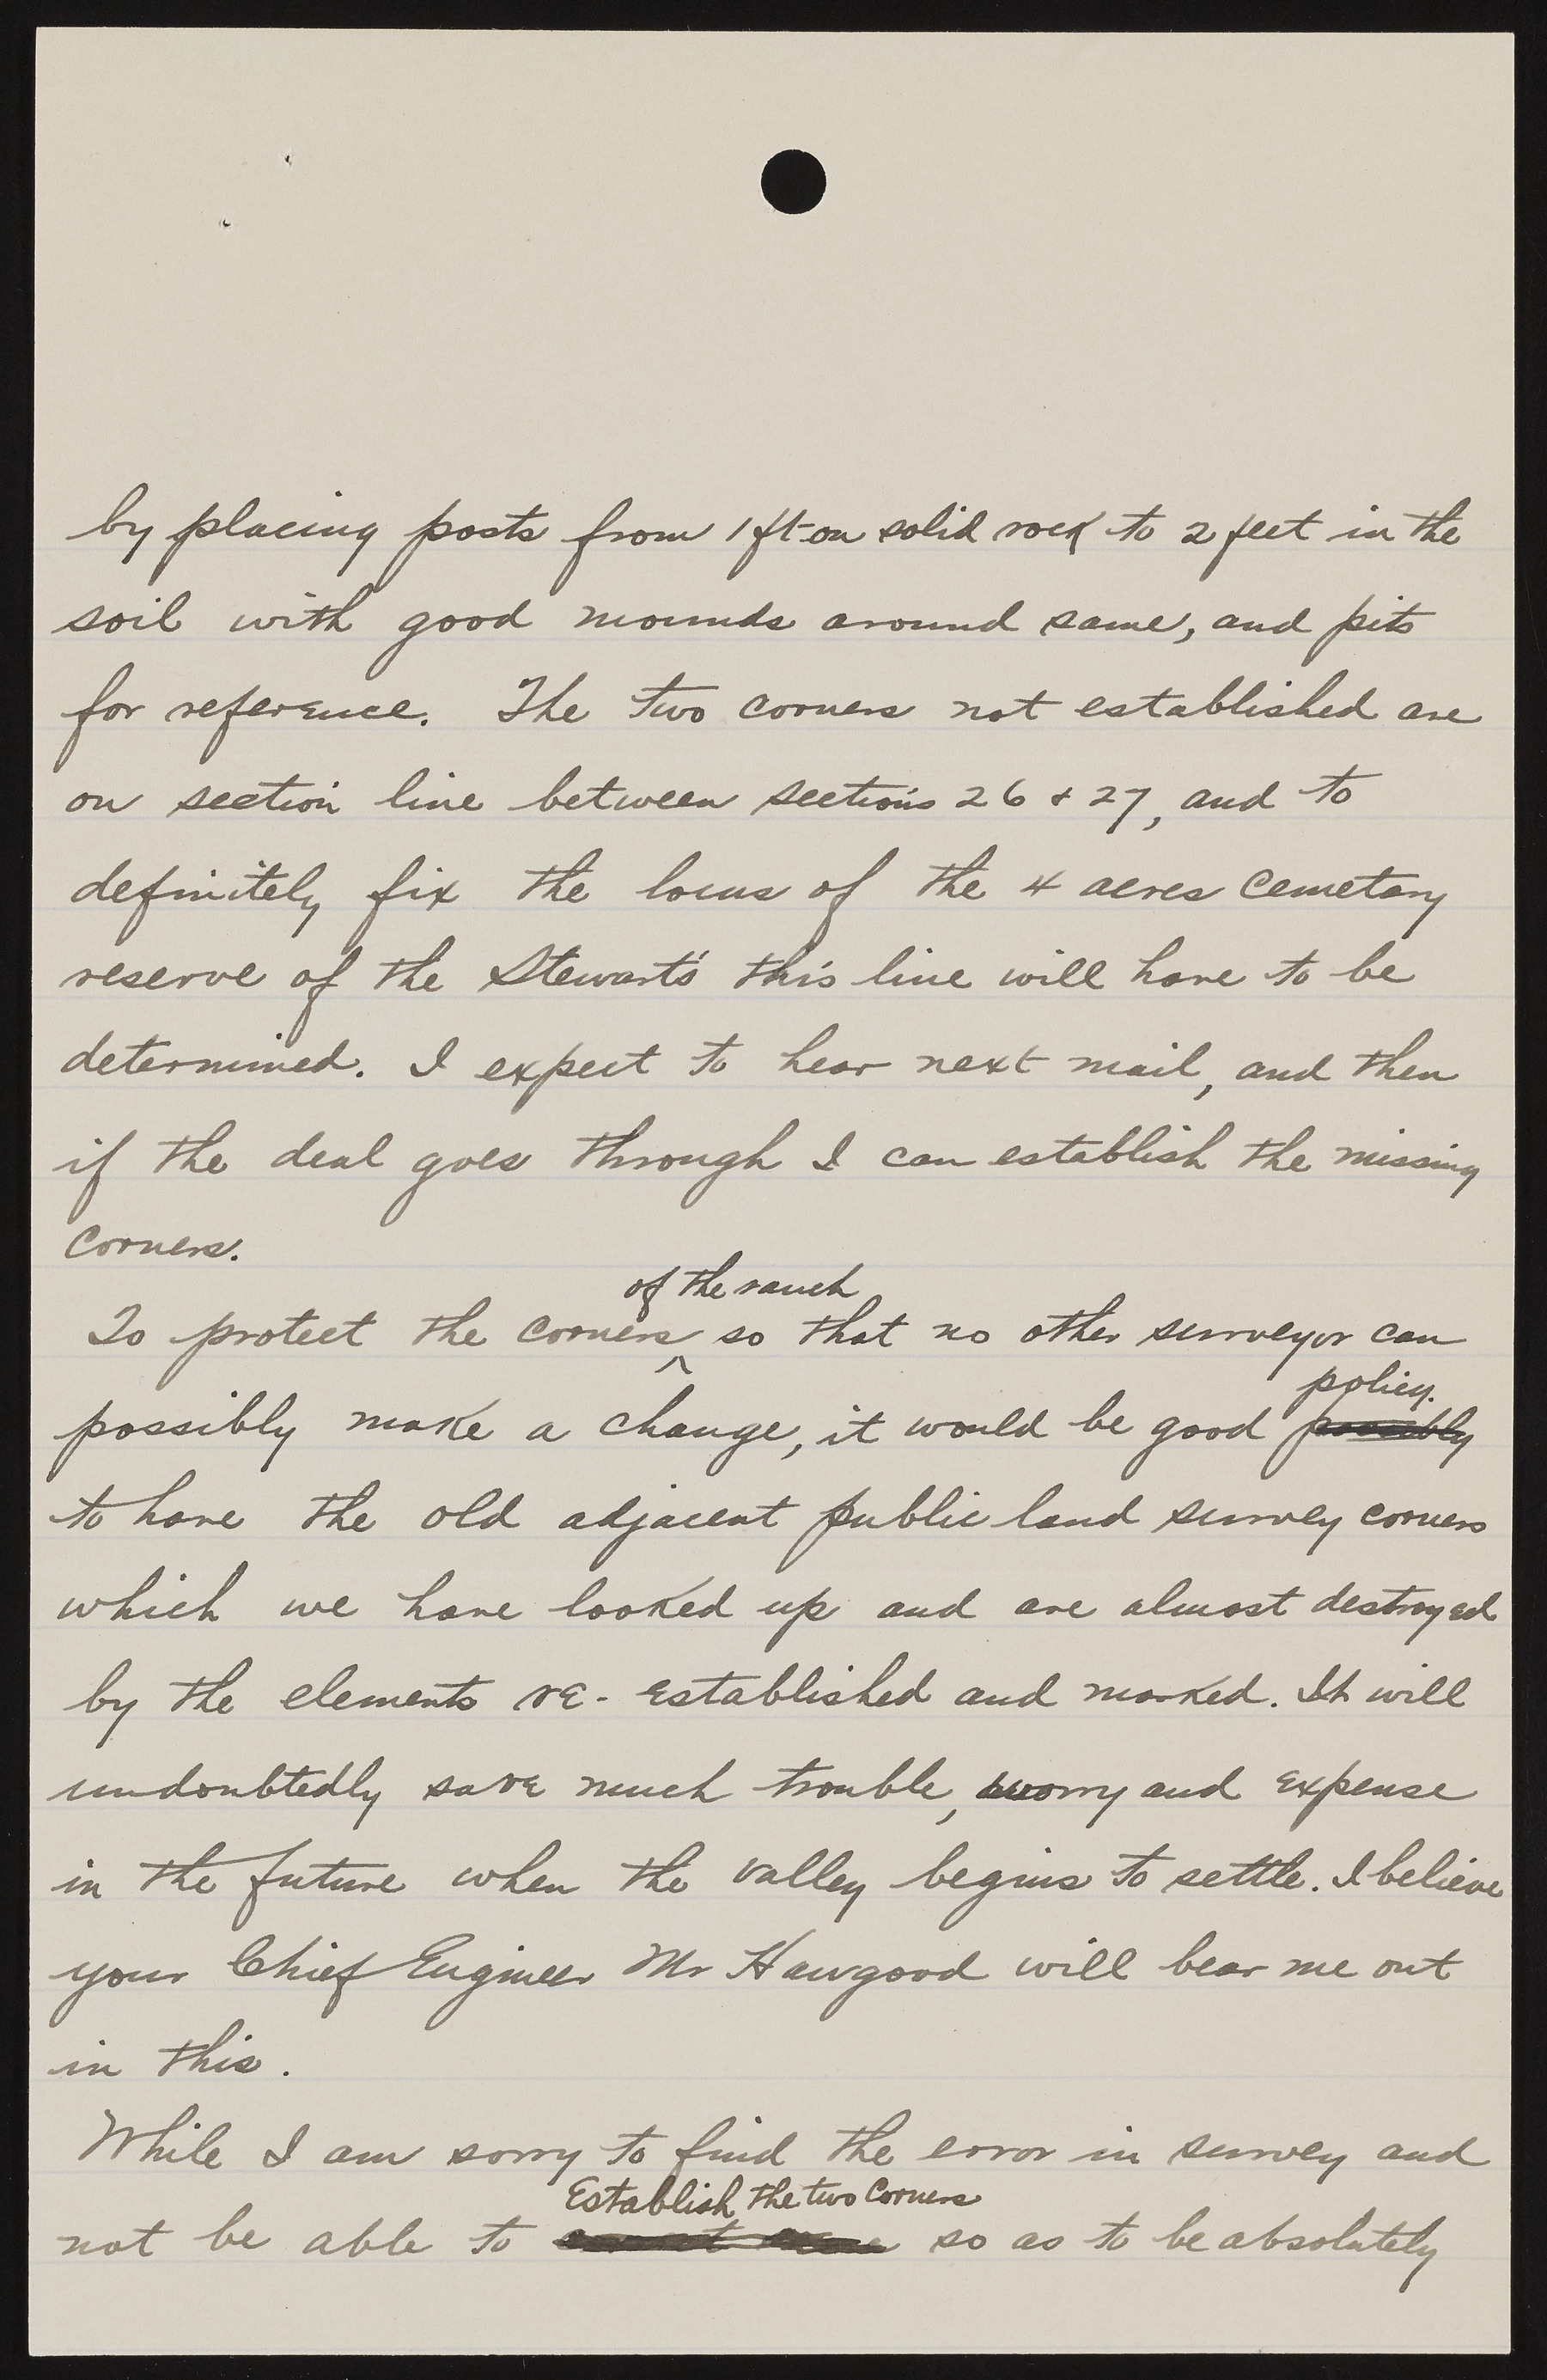 by placing posts from 1 ft on solid rock to 2 feet in the
soil with good mounds around same, and pits
for reference. The two corners not established are
on section line between sections 26 & 27, and to
definitely fix the locus of the 4 acres Cemetary
reserve of the Stewarts' this line will have to be
determined. I expect to hear next mail, and then
if the deal goes through I can establish the missing
corners.
of the ranch
To protect the corners ^ so that no other surveyor can
policy.
possibly make a change, it would be good possibly
to have the old adjacent public land survey corners
which we have looked up and are almost destroyed
by the elements re-established and marked. It will
undoubtedly save much trouble, worry and expense
in the future when the valley begins to settle. I believe
your Chief Engineer Mr Hawgood will bear me out
in this.
While I am sorry to find the error in survey and
Establish the two Corners
not be able to so as to be absolutely